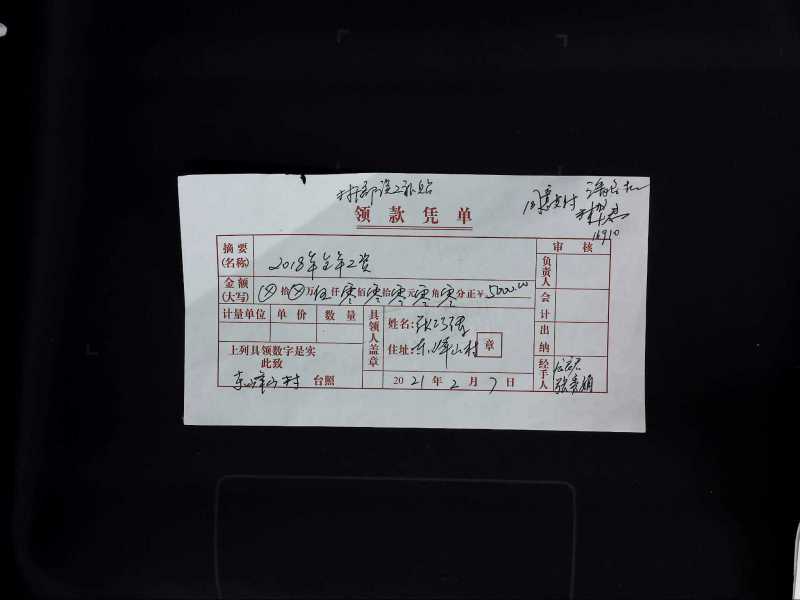 同意支付
领款凭单
摘要 审核
(名称) 2018年全年工资 负责人
金额
(大写) ⊗拾⊗万伍仟零佰零拾零元零角零分正￥5000.00 会计
计量单位 单价 数量 具领人盖章 姓名: 出纳
住址:东峰山村 章
上列具领数字是实
此致
东峰山村 台照 2021年2月7日 经手人